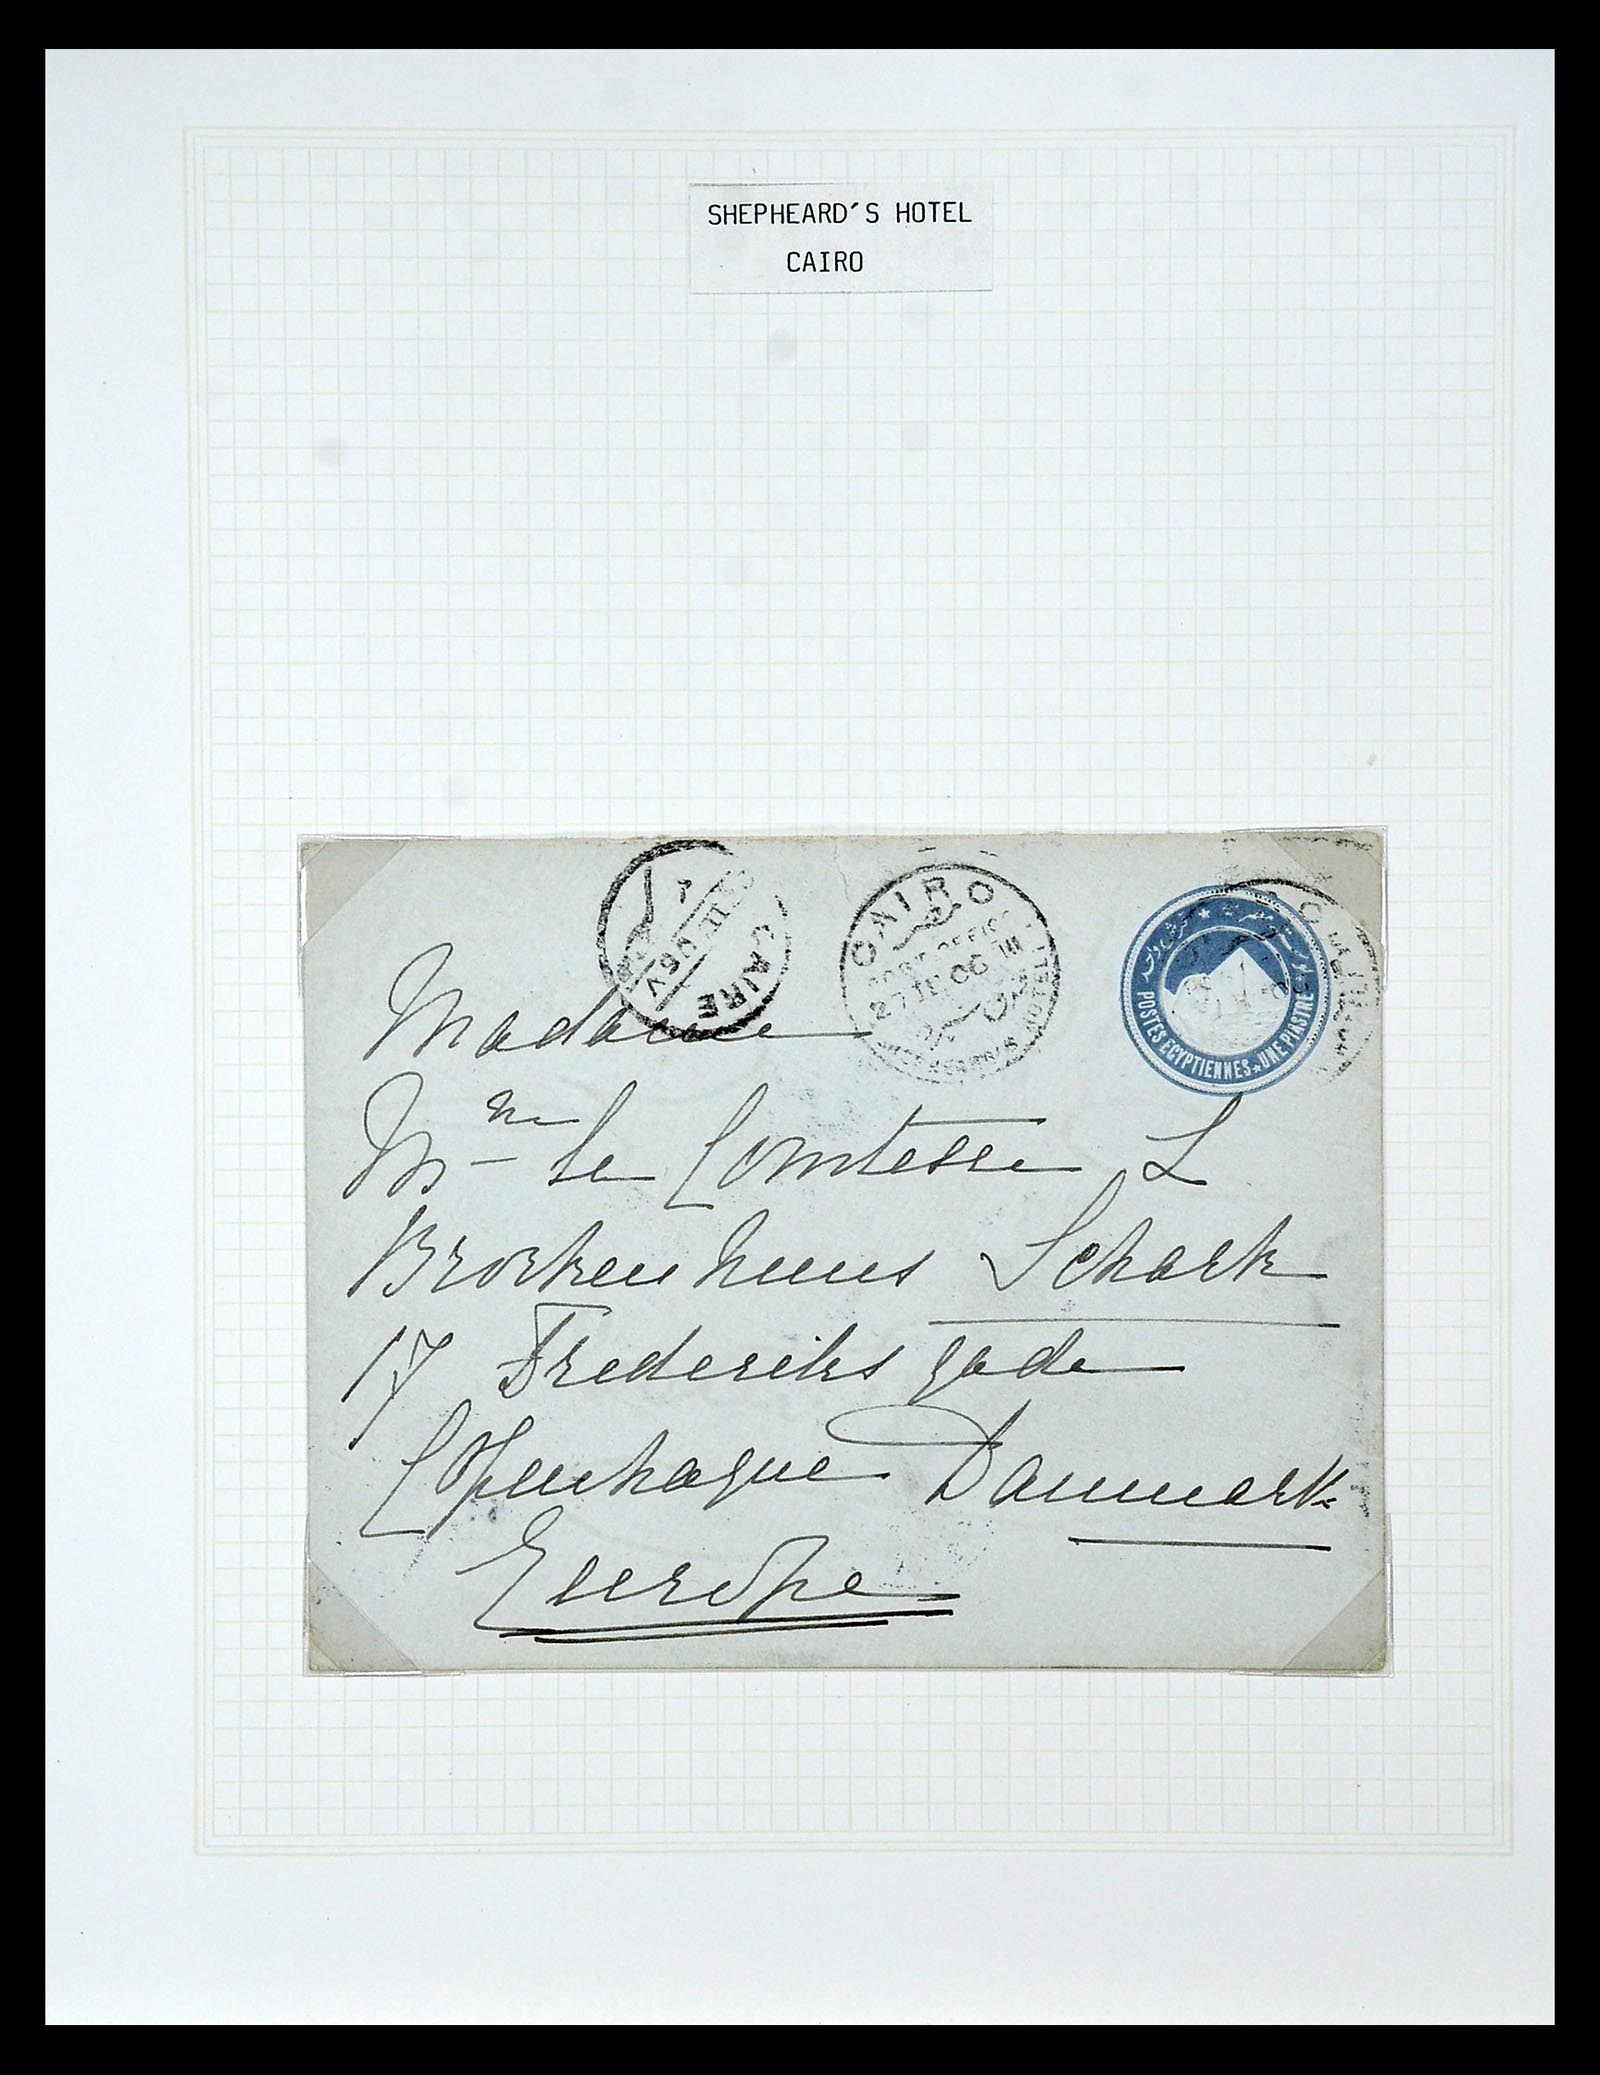 SHEPHEARD´S HOTEL
CAIRO
CAIRE
CAIRO
POST OFFICE
27 II 06 III
SHEPHEARD'S HOTEL
POSTES EGYPTIENNES ★ UNE PIASTRE
Madame
Mme la Comtesse L
Brockenhuus Schack
17 Frederiks gade
Copenhague Danmark
Europe